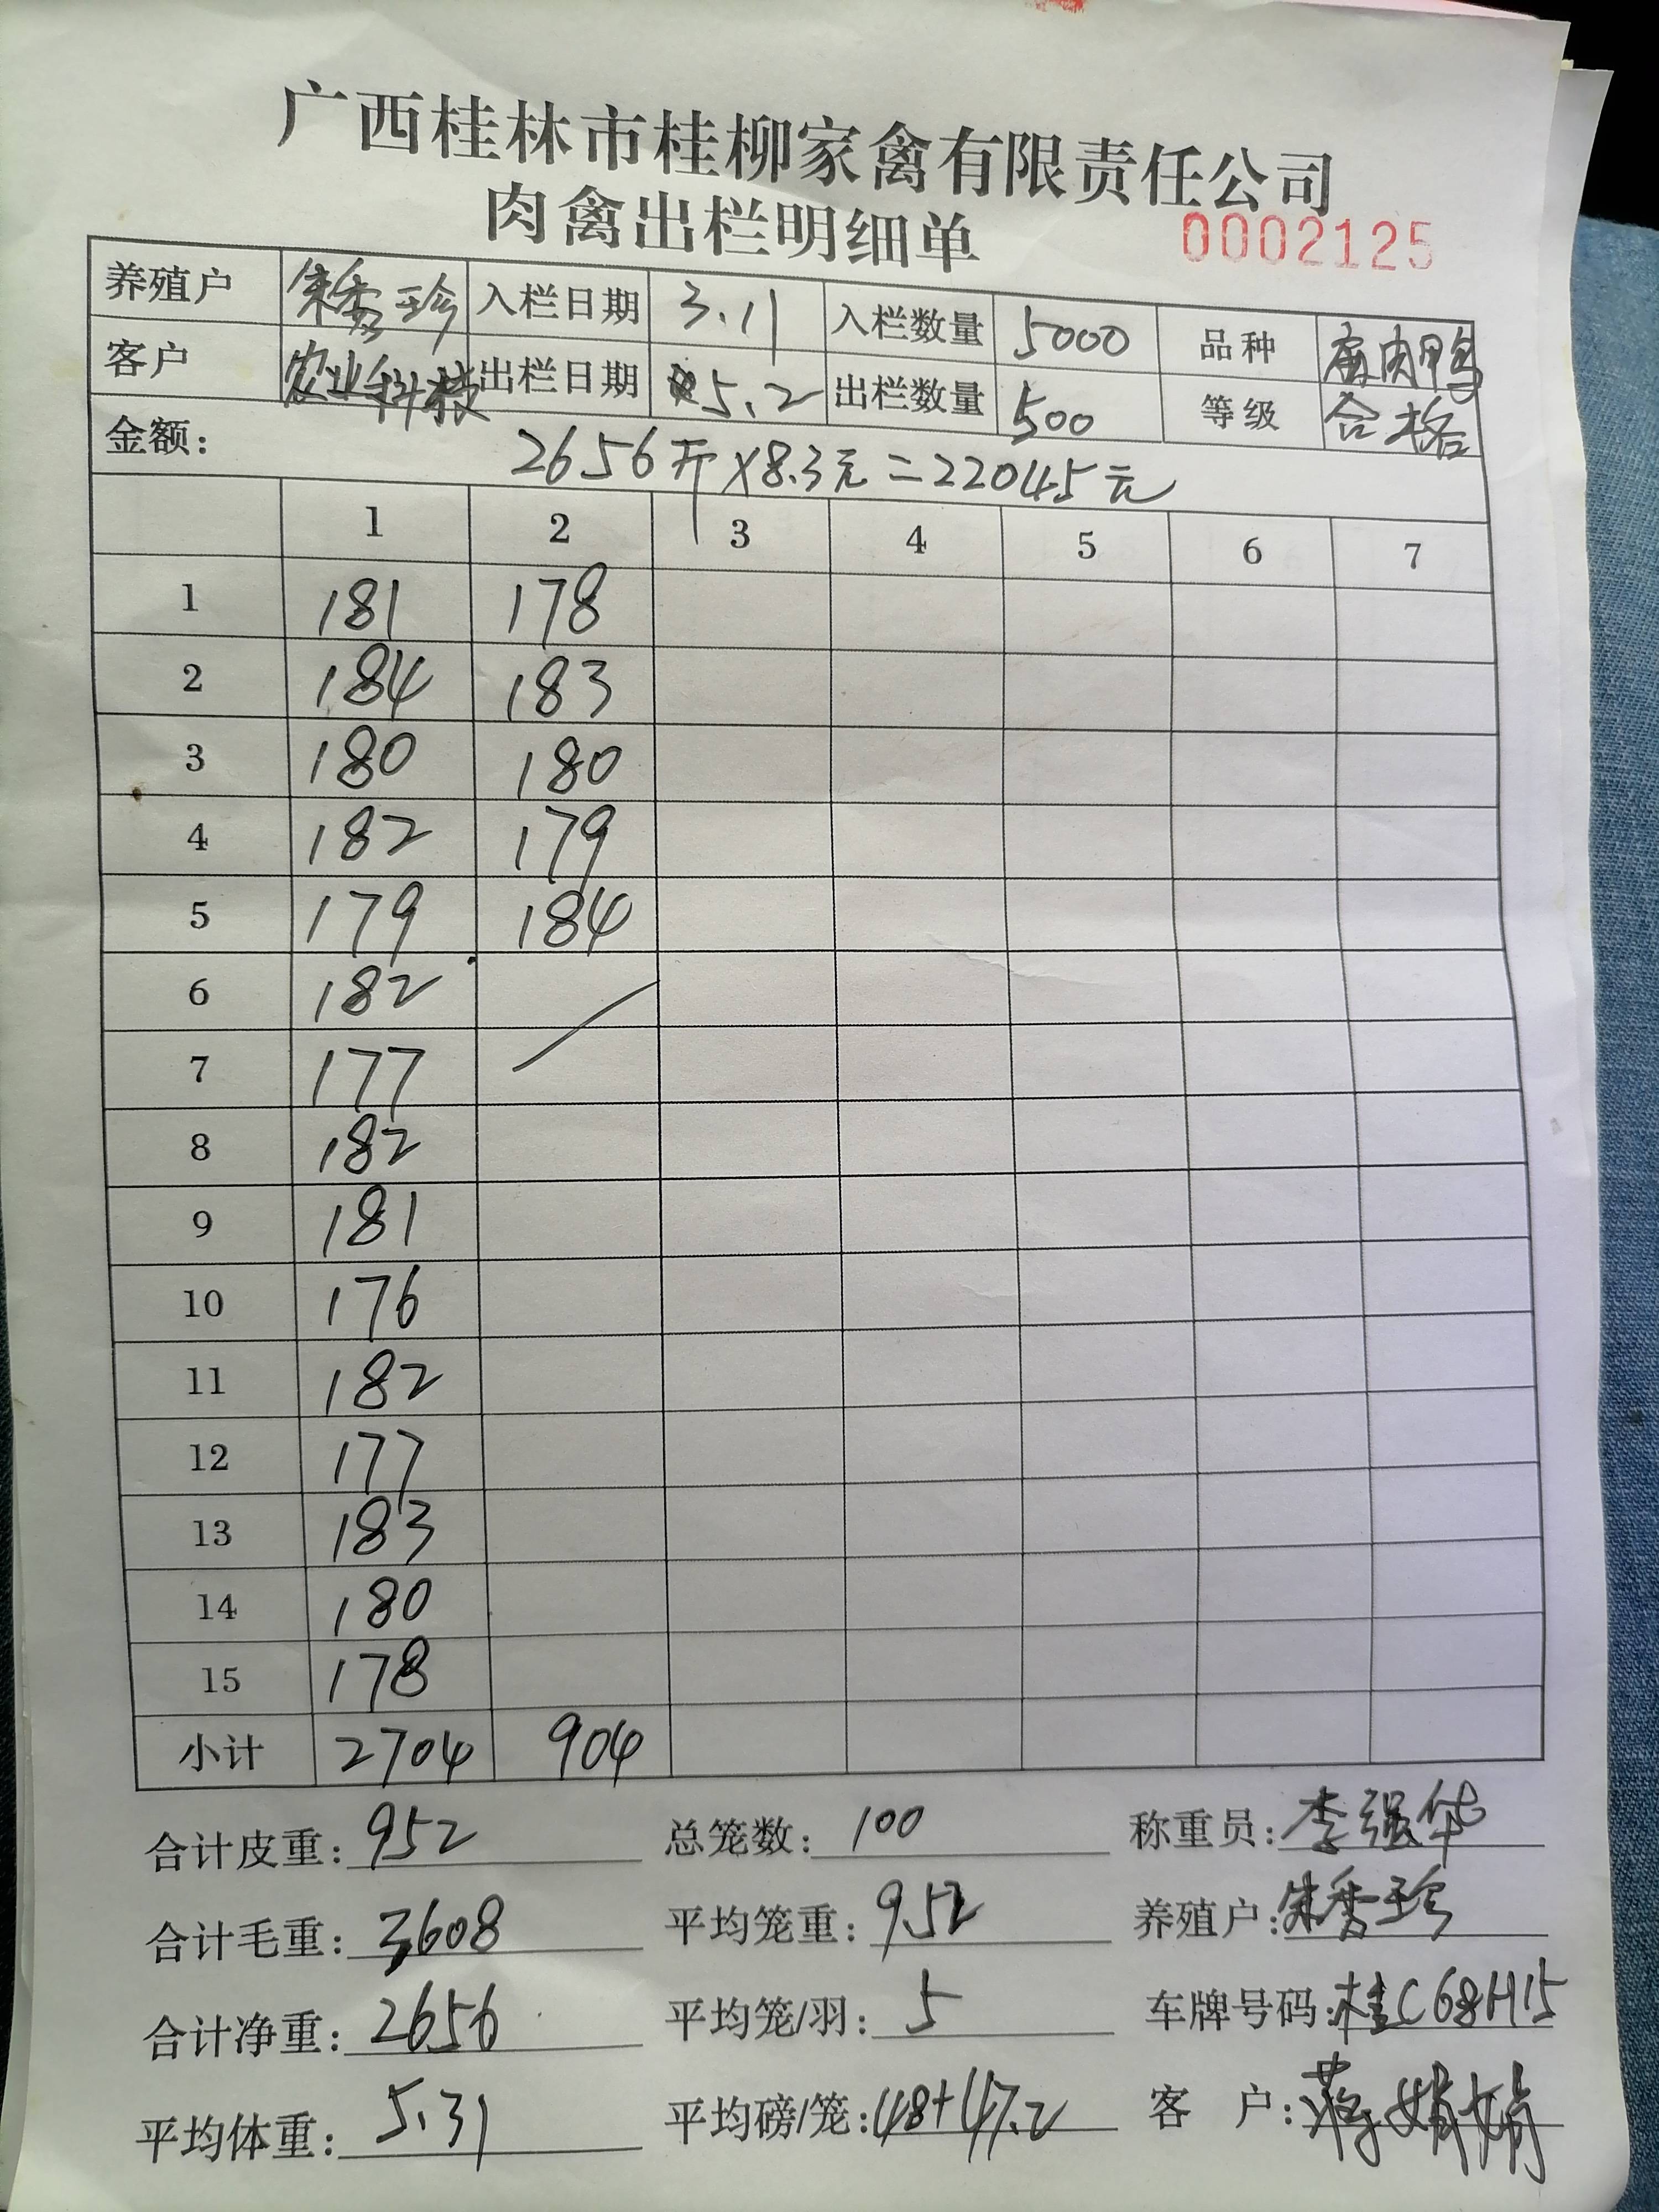 广西桂林市桂柳家禽有限责任公司
肉禽出栏明细单 0002125
养殖户 朱秀珍 入栏日期 3.11 入栏数量 5000 品种 肉鸭
客户 农业科技 出栏日期 5.2 出栏数量 500 等级 合格
金额: 2656斤×8.3元=22045元
1 2 3 4 5 6 7
1 181 178
2 184 183
3 180 180
4 182 179
5 179 184
6 182
7 177
8 182
9 181
10 176
11 182
12 177
13 183
14 180
15 178
小计 2704 904
合计皮重: 952 总笼数: 100 称重员: 李强华
合计毛重: 3608 平均笼重: 9.52 养殖户: 朱秀珍
合计净重: 2656 平均笼/羽: 5 车牌号码: 桂C68H15
平均体重: 5.31 平均磅/笼: 48+47.2 客 户: 蒋娟娟